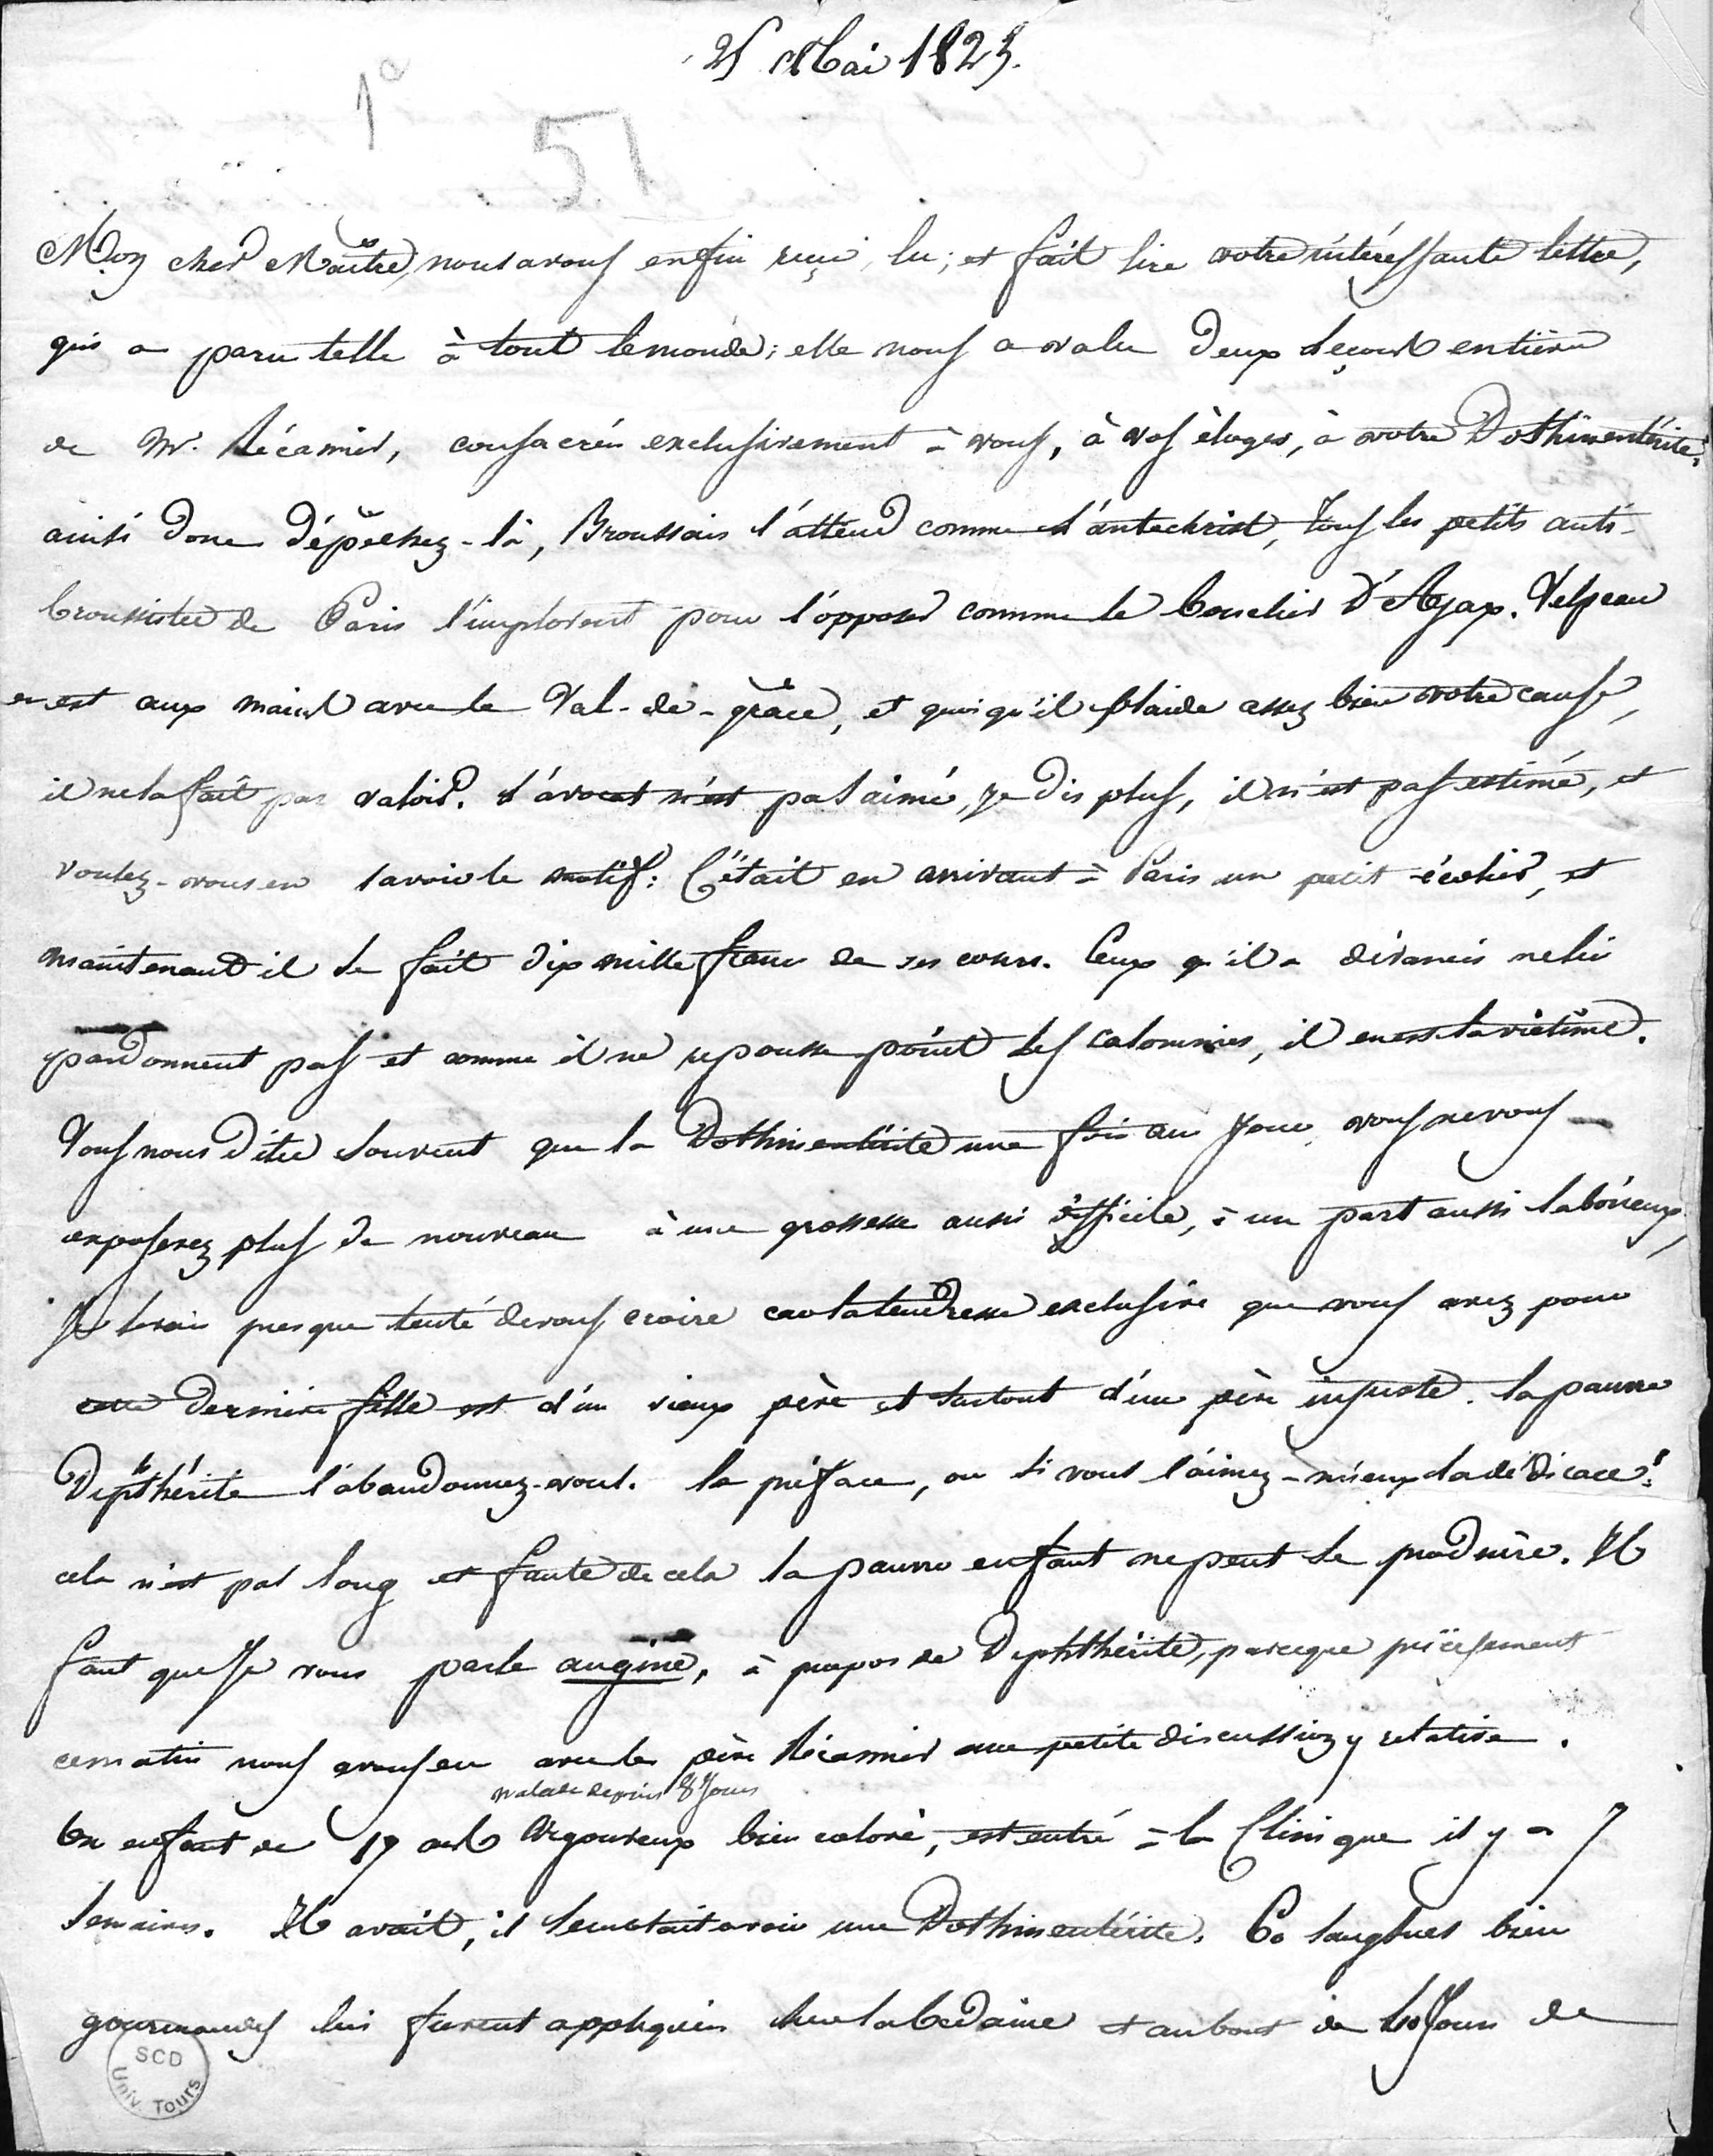 25 Mai 1825.
1e
51
Mon cher Maître, nous avons enfin reçu, lu, et fait lire votre intéressante lettre,
qui a paru telle à tout le monde; elle nous a valu deux leçons entières
de Mr. Récamier, consacrées exclusivement à vous, à vos éloges, à votre Dothinentérite;
ainsi donc dépêchez-la, Broussais l'attend comme l'antechrist, tous les petits anti-
broussistes de Paris l'implorent pour l'opposer comme le bouclier d'Ajax. Velpeau
en est aux mains avec le Val-de-grâce, et quoiqu'il plaide assez bien votre cause,
il ne la fait pas valoir. l'avocat n'est pas aimé, je dis plus, il n'est pas estimé, et
voulez-vous en savoir le motif: C'était en arrivant à Paris un petit écolier, et
maintenant il se fait dix mille francs de ses cours. Ceux qu'il a devancés ne lui
pardonnent pas et comme il ne repousse point les calomnies, il en est la victime.
Vous nous dites souvent que la Dothinentérite une fois au jour, vous ne vous
exposerez plus de nouveau à une grossesse aussi difficile, à un part aussi laborieux,
Je serais presque tenté de vous croire car la tendresse exclusive que vous avez pour
cette dernière fille est d'un vieux père et surtout d'un père injuste. la pauvre
Diphthérite l'abandonnez-vous. la préface, ou si vous l'aimez-mieux la dédicace!
cela n'est pas long et faute de cela la pauvre enfant ne peut se produire. Il
faut que je vous parle angine, à propos de Diphthérite, parceque précisement
ce matin nous avons eu avec le père Récamier une petite discussion y relative.
malade depuis 8 jours
Un enfant de 17 ans vigoureux bien coloré, est entré à la Clinique il y a 7
semaines. Il avait, il semblait avoir une Dothinentérite. 60 sangsues bien
gourmandes lui furent appliquées sur la bedaine et au bout de 40 jours de
SCD
Univ. Tours